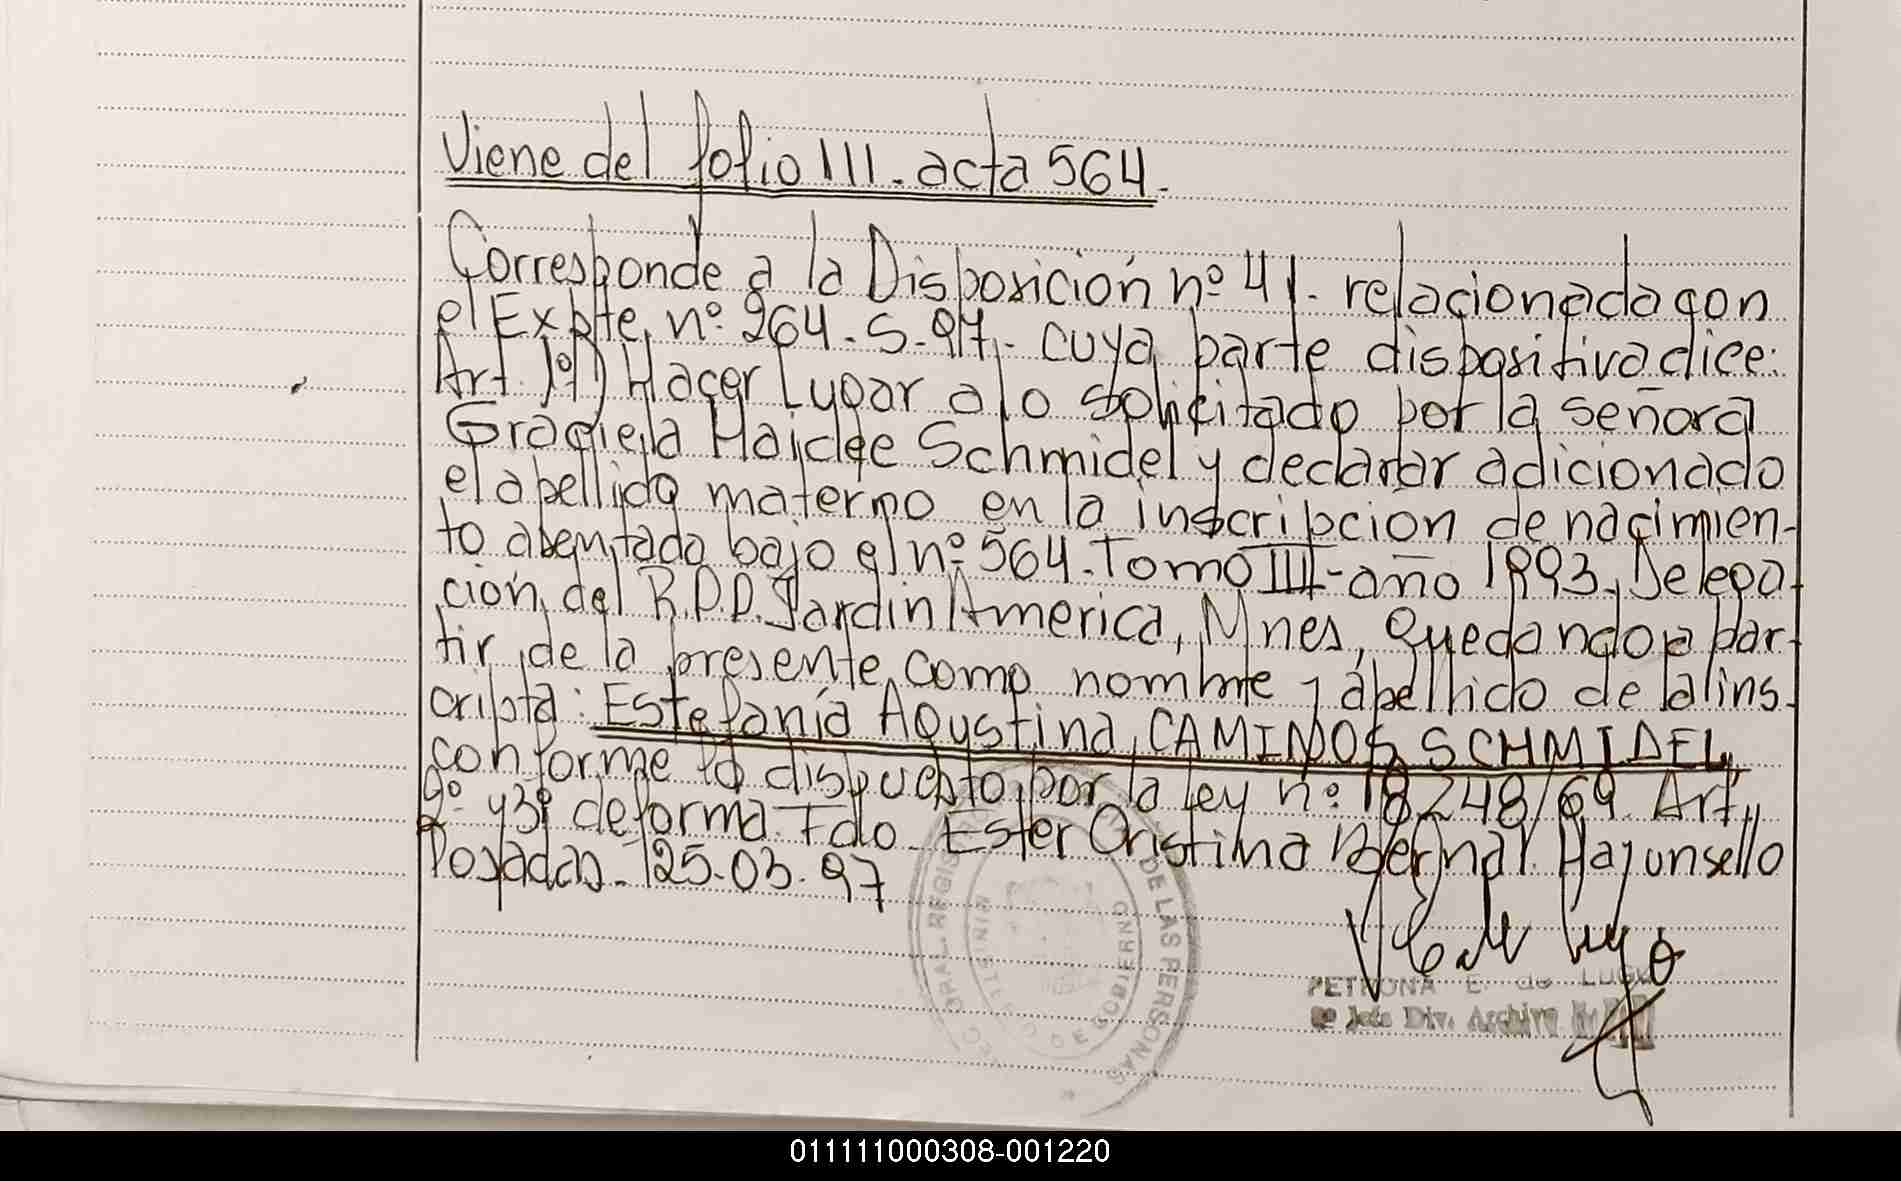 Viene del folio 111. acta 564.
Corresponde a la Disposición nº 41. relacionada con
el Expte. nº 264. S. 97. cuya parte dispositiva dice:
Art. 1º) Hacer Lugar a lo solicitado por la señora
Graciela Haidee Schmidel y declarar adicionado
el apellido materno en la inscripción de nacimien-
to asentada bajo el nº 564. Tomo III - año 1993, Delega-
ción, del R.P.P. Jardin America, Mnes, Quedando a par-
tir de la presente como nombre y apellido de la ins-
cripta: Estefanía Agustina, CAMINOS SCHMIDEL,
conforme lo dispuesto por la ley nº 18248/69 Art.
y 3º de forma. Fdo. Ester Cristina Bernal.
Posadas - 25.03.97
DE LAS PERSONAS
MINISTERIO DE GOBIERNO
PETRONA E. de LUGO
Jefe Div. Archivo
011111000308-001220